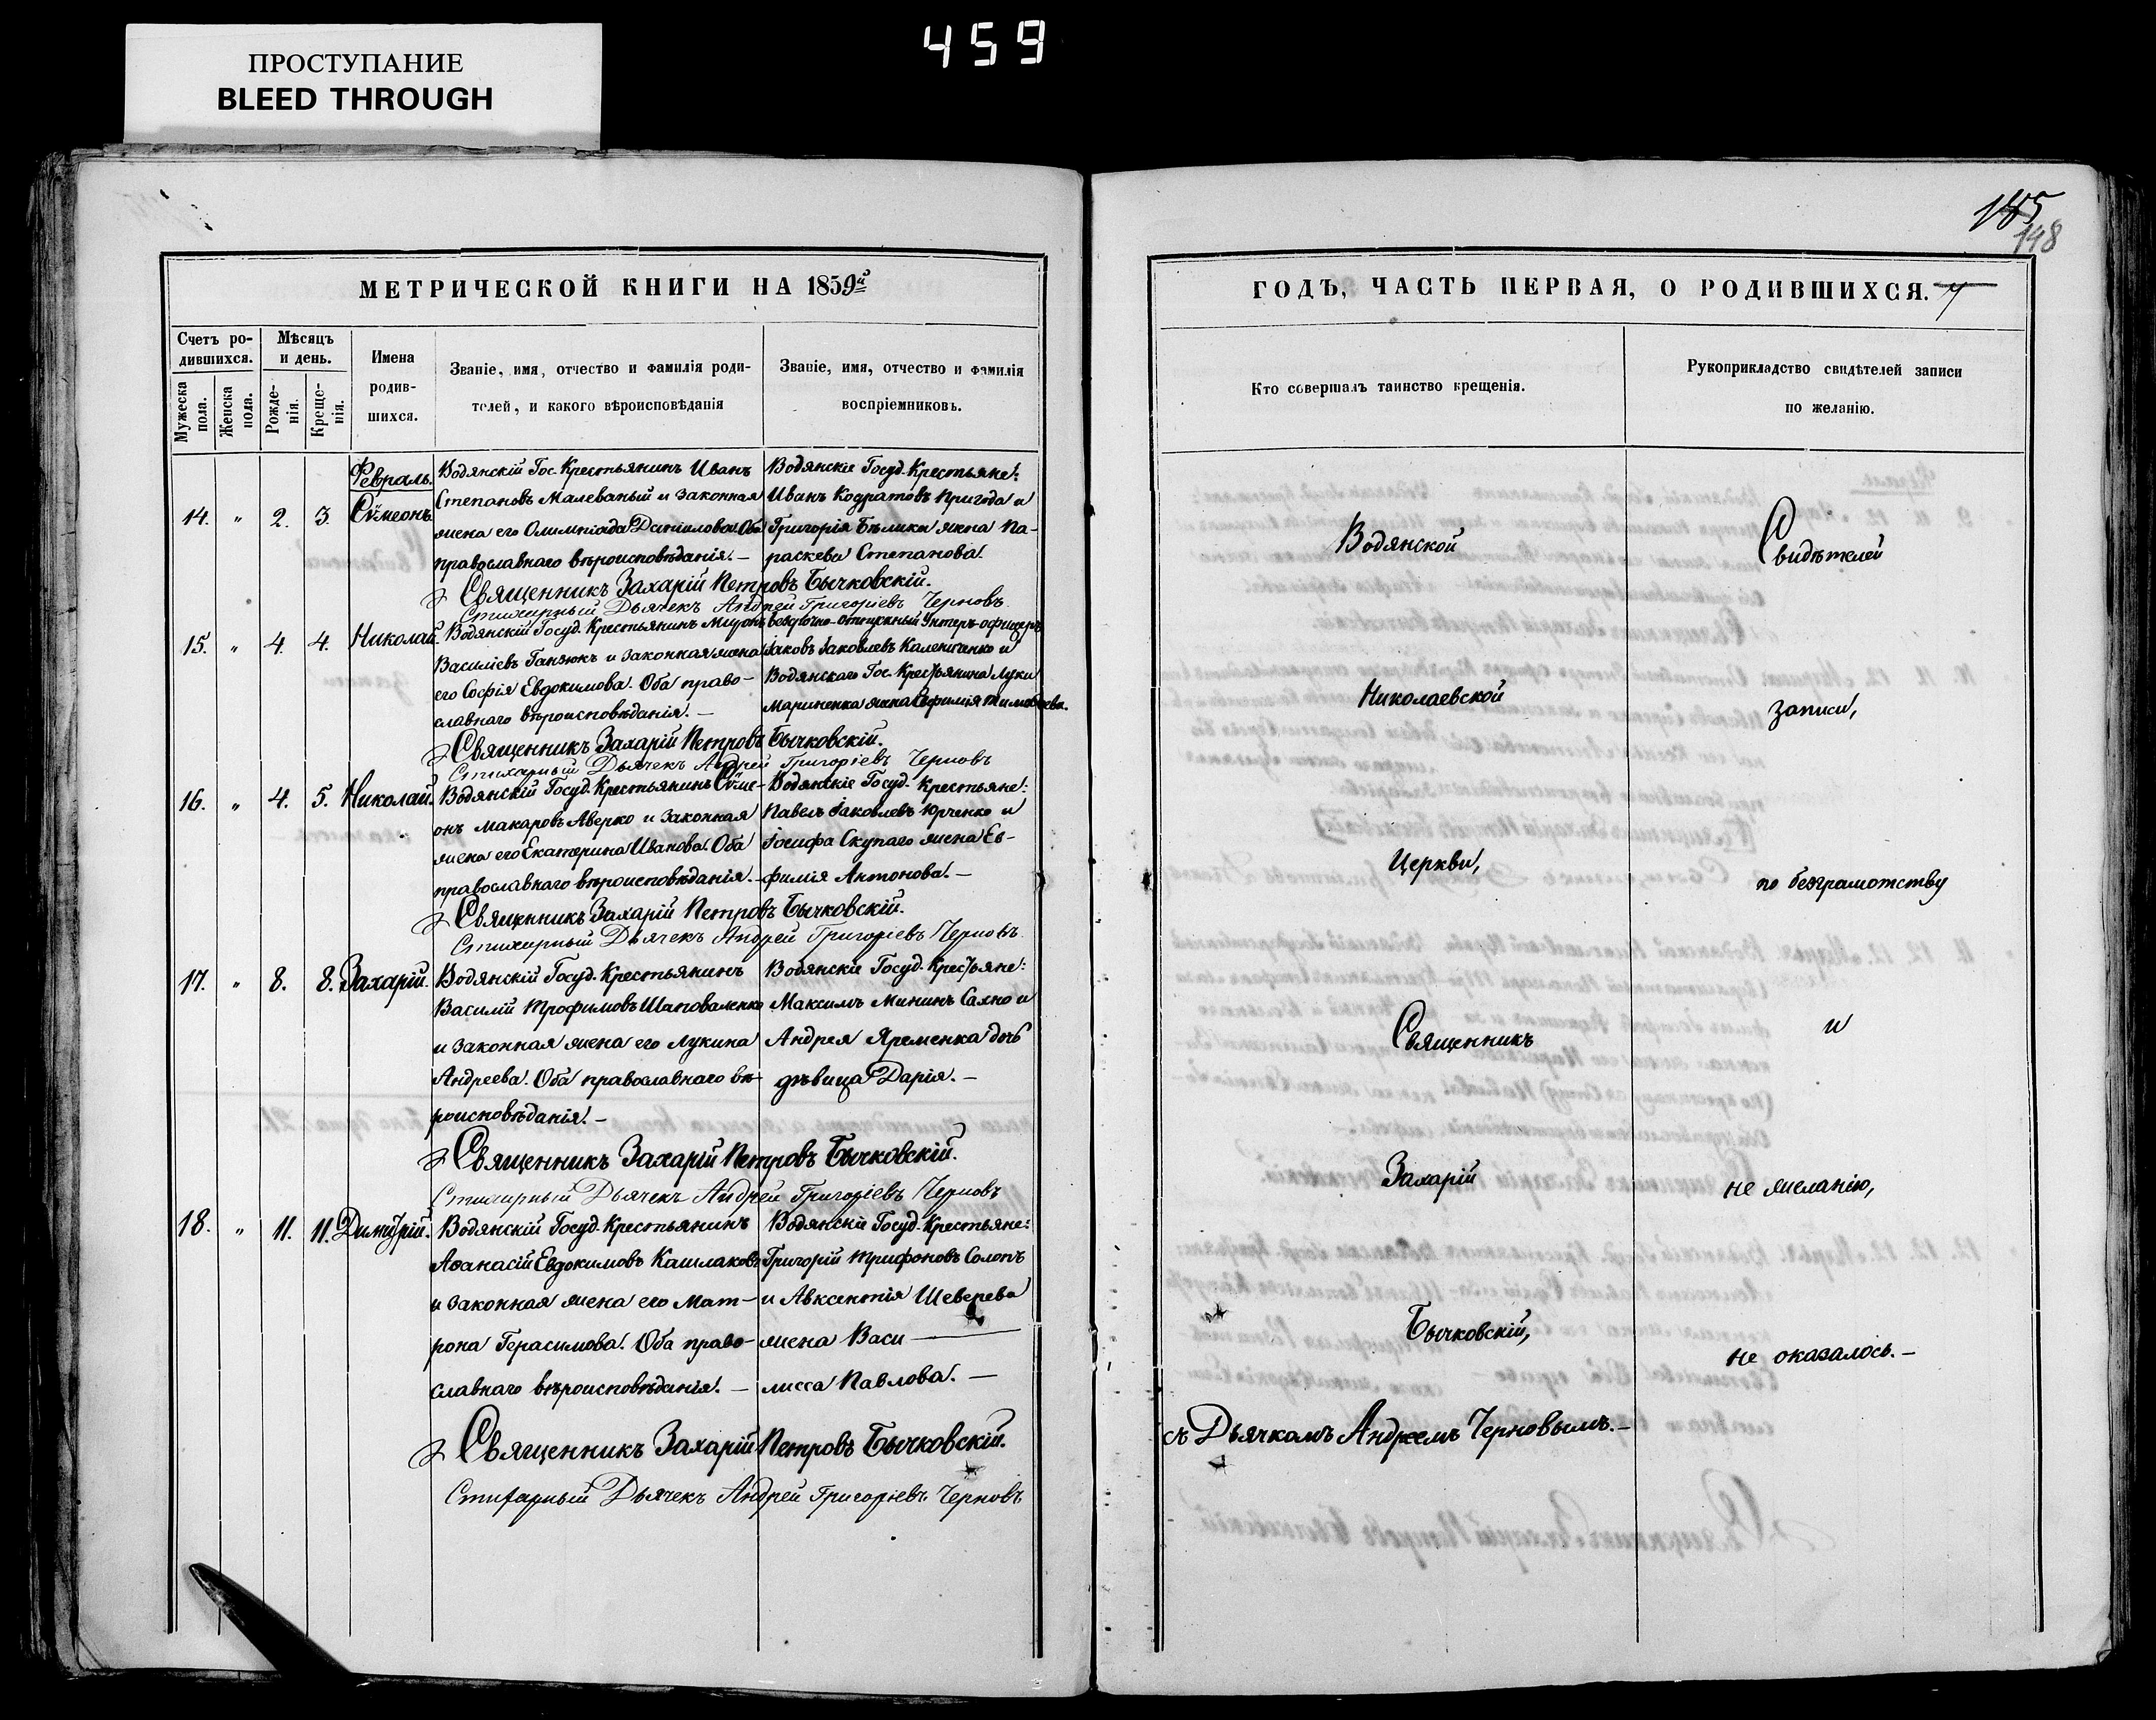 ПРОСТУПАНИЕ
BLEED THROUGH
459
185
148
МЕТРИЧЕСКОЙ КНИГИ НА 1859й
Счетъ ро-
дившихся.
Мужеска пола.
Женска пола.
Мѣсяцъ
и день.
Рожде-
нія.
Креще-
нія.
Имена
родив-
шихся.
Званіе, имя, отчество и фамилія роди-
телей, и какого вѣроисповѣданія
Званіе, имя, отчество и фамилія
воспріемниковъ.
Февраль.
14. " 2. 3. Сѵмеонъ
Водянскій Гос. Крестьянинъ Иванъ
Степановъ Малеваный и законная
жена его Олимпіада Даніилова. Оба
православнаго вѣроисповѣданія. —
Водянскіе Госуд. Крестьяне:
Иванъ Кодратовъ Пригода и
Григорія Бѣлика жена Па-
раскева Степанова.
Священникъ Захарій Петровъ Бычковскій.
Стихарный Дьячекъ Андрей Григоріевъ Черновъ
15. " 4. 4. Николай.
Водянскій Госуд. Крестьянинъ Миронъ
Василіевъ Ганзюкъ и законная жена
его Софія Евдокимова. Оба право-
славнаго вѣроисповѣданія. —
Безсрочно-отпускный Унтеръ-офицеръ
Іаковъ Іаковлевъ Калениченко и
Водянскаго Гос. Крестьянина Луки
Мариненка жена Евфимія Тимофеева.
Священникъ Захарій Петровъ Бычковскій.
Стихарный Дьячекъ Андрей Григоріевъ Черновъ
16. " 4. 5. Николай.
Водянскій Госуд. Крестьянинъ Сѵме-
онъ Макаровъ Аверко и законная
жена его Екатерина Иванова. Оба
православнаго вѣроисповѣданія. —
Водянскіе Госуд. Крестьяне:
Павелъ Іаковлевъ Юрченко и
Іосифа Скупаго жена Ев-
фимія Антонова. —
Священникъ Захарій Петровъ Бычковскій.
Стихарный Дьячекъ Андрей Григоріевъ Черновъ
17. " 8. 8. Захарій.
Водянскій Госуд. Крестьянинъ
Василій Трофимовъ Шаповаленко
и законная жена его Лукина
Андреева. Оба православнаго вѣ-
роисповѣданія. —
Водянскіе Госуд. Крестьяне:
Максимъ Мининъ Сахно и
Андрея Яременка дочь
дѣвица Дарія. —
Священникъ Захарій Петровъ Бычковскій.
Стихарный Дьячекъ Андрей Григоріевъ Черновъ
18. " 11. 11. Димитрій.
Водянскій Госуд. Крестьянинъ
Аѳанасій Евдокимовъ Кашлаковъ
и законная жена его Мат-
рона Герасимова. Оба право-
славнаго вѣроисповѣданія. —
Водянскіе Госуд. Крестьяне:
Григорій Трифоновъ Солопъ
и Авксентія Шеверева
жена Васи —
лисса Павлова. —
Священникъ Захарій Петровъ Бычковскій.
Стихарный Дьячекъ Андрей Григоріевъ Черновъ
ГОДЪ, ЧАСТЬ ПЕРВАЯ, О РОДИВШИХСЯ.
Кто совершалъ таинство крещенія.
Рукоприкладство свидѣтелей записи
по желанію.
Водянской
Николаевской
Церкви,
Священникъ
Захарій
Бычковскій,
съ Дьячкомъ Андреемъ Черновымъ. —
Свидѣтелей
записи,
по безграмотству
и
не желанію,
не оказалось. —